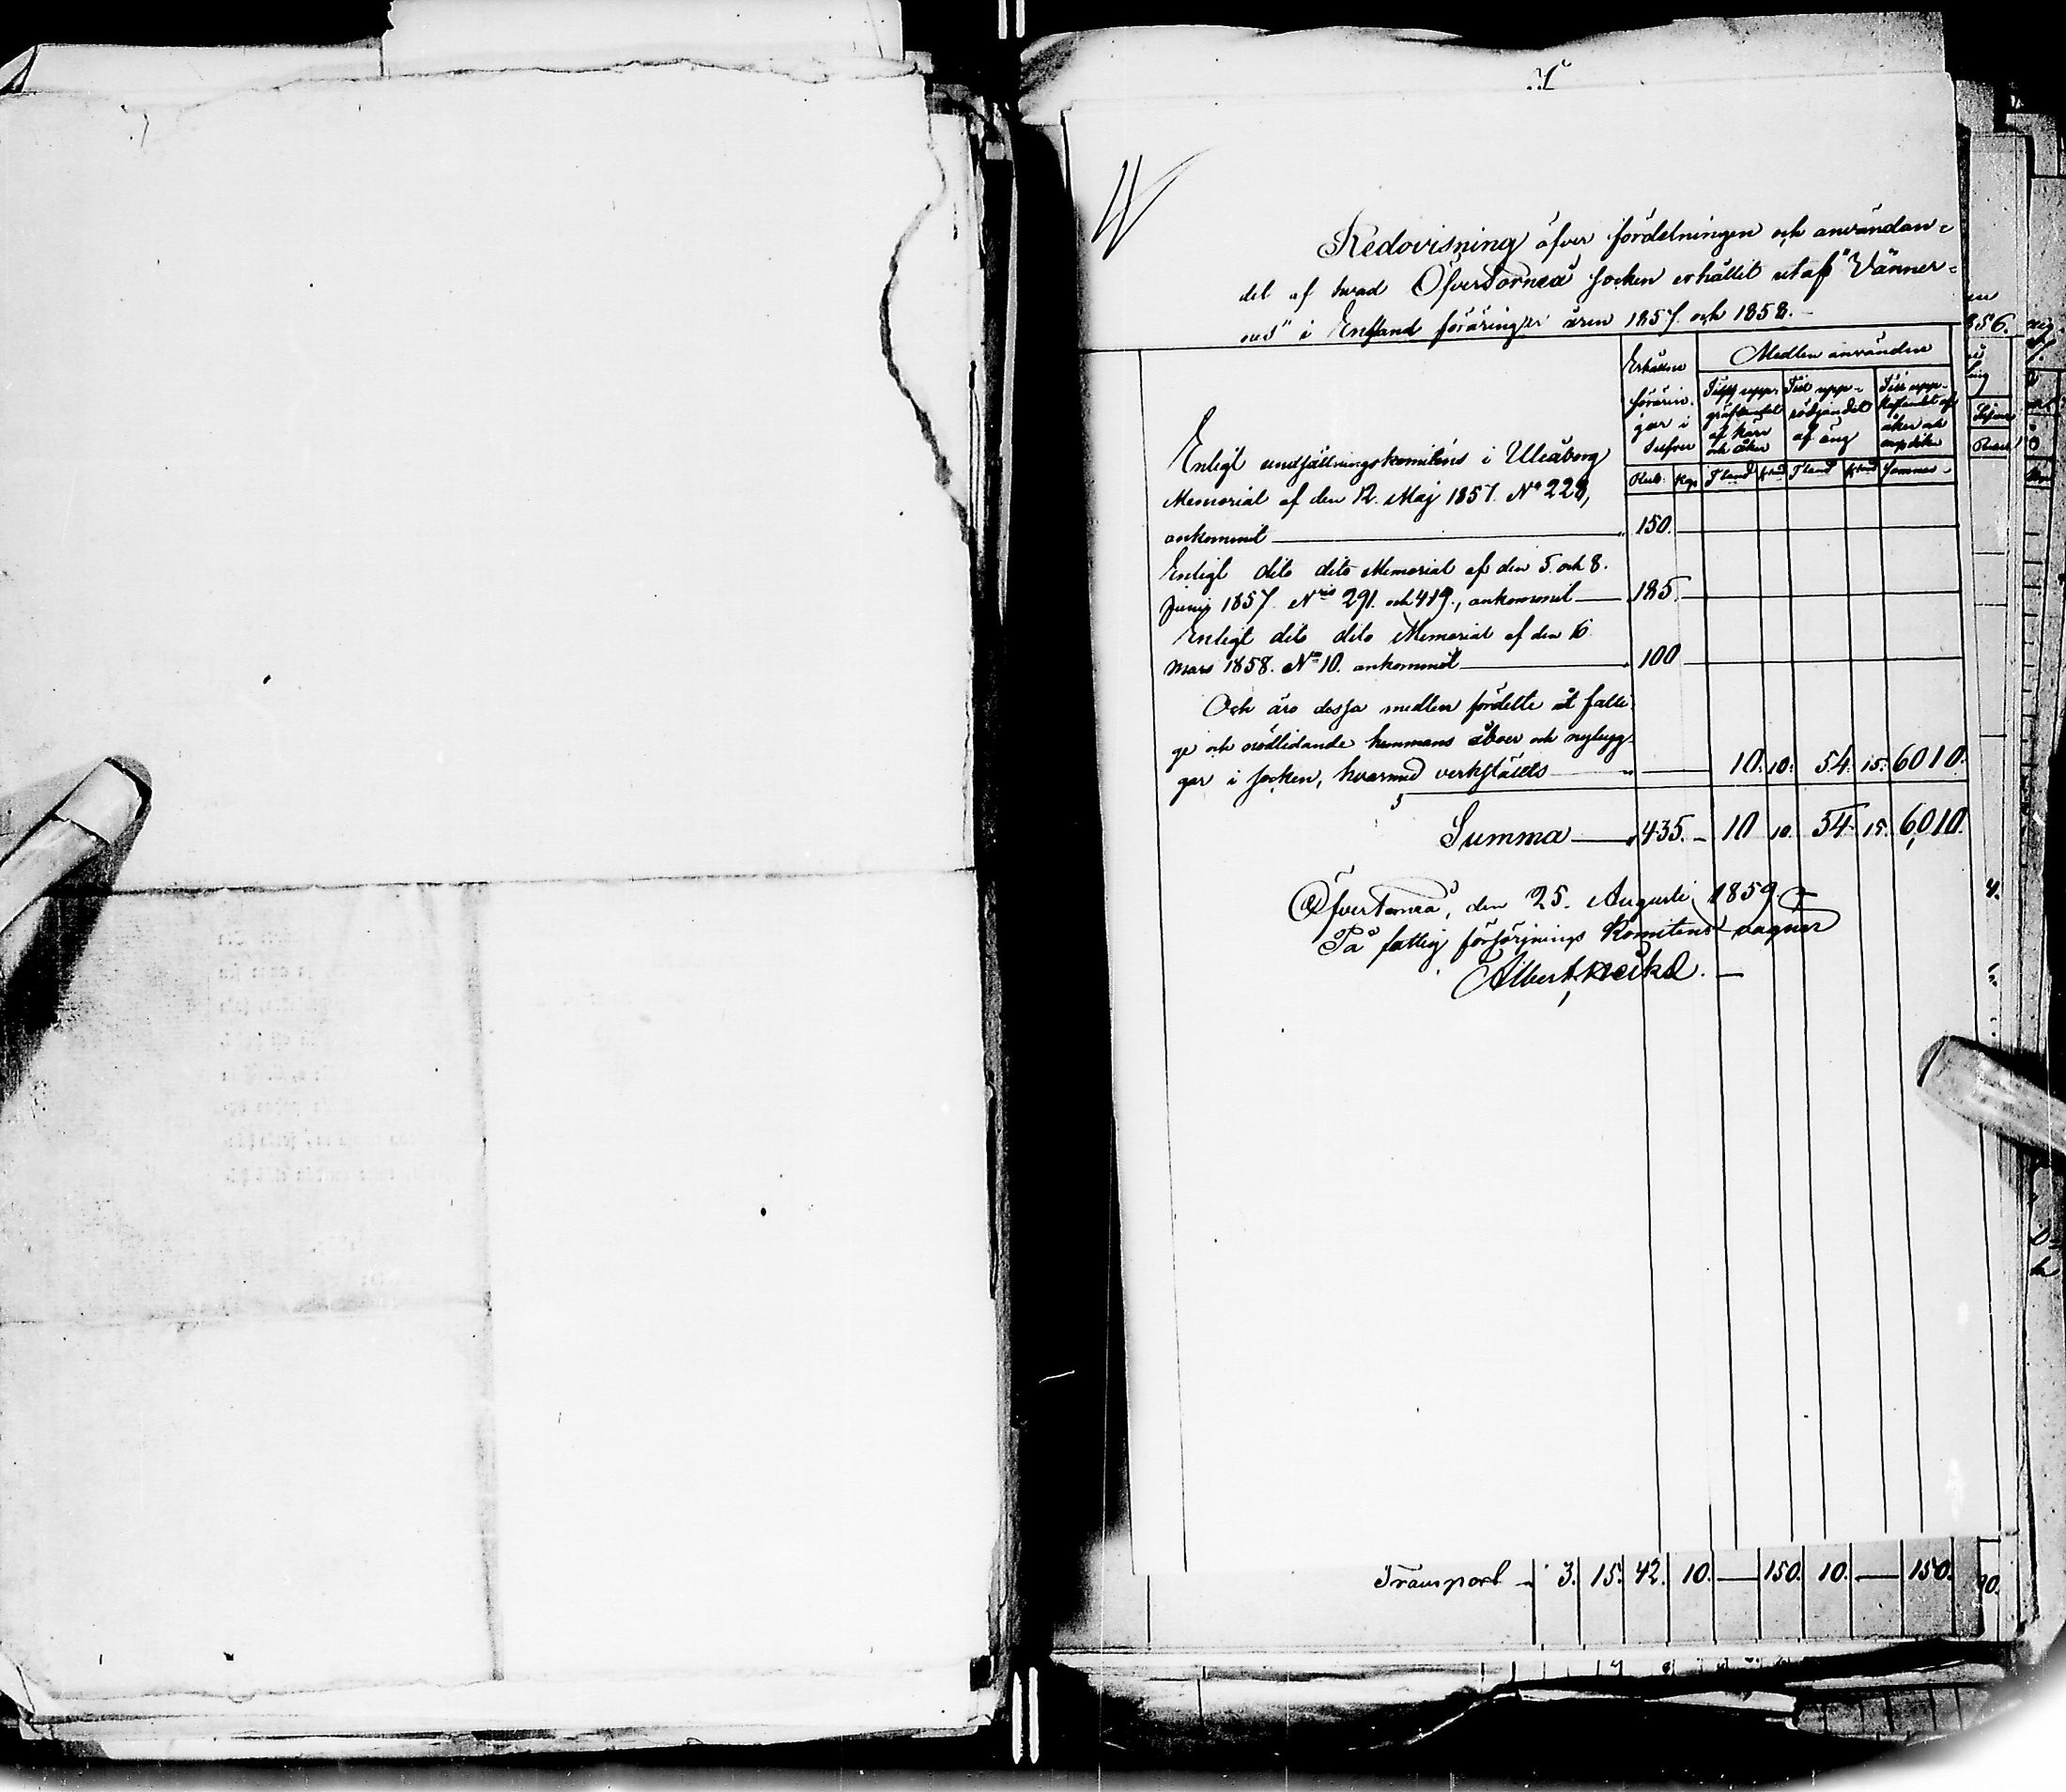 Redovisning öfver fördelningen och användan-
det af hvad ÖfverTorneå socken erhållit utaf "Vänner-
nes" i England föräringar åren 1857. och 1858.
Erhållne föräringar i Silfver
Medlen användes
Till uppgräftandet af kärr och åker
Till upprödjandet af äng
Till uppkastandet af åker och ängsdiken
Rub. Kop. Tland Kland Tland Kland Famnar
Enligt undsättningskomiténs i Uleåborg
Memorial af den 12. Maj 1857. No 228,
ankommit 150.
Enligt dito dito Memorial af den 5. och 8.
Junij 1857. Nris 291. och 419., ankommit 185.
Enligt dito dito Memorial af den 16
Mars 1858. No 10. ankommit 100
Och äro dessa medlen fördelte åt fatti-
ge och nödlidande hemmans åboer och nybyg-
gar i socken, hvarmed verkställts 10. 10. 54. 15. 6010.
Summa 435. — 10 10. 54. 15. 6,010.
ÖfverTorneå, den 25. Augusti 1859.
På fattig försörjnings Komiténs vägnar
Albert Heikel.
Transport 3. 15. 42. 10. — 150. 10. — 150.